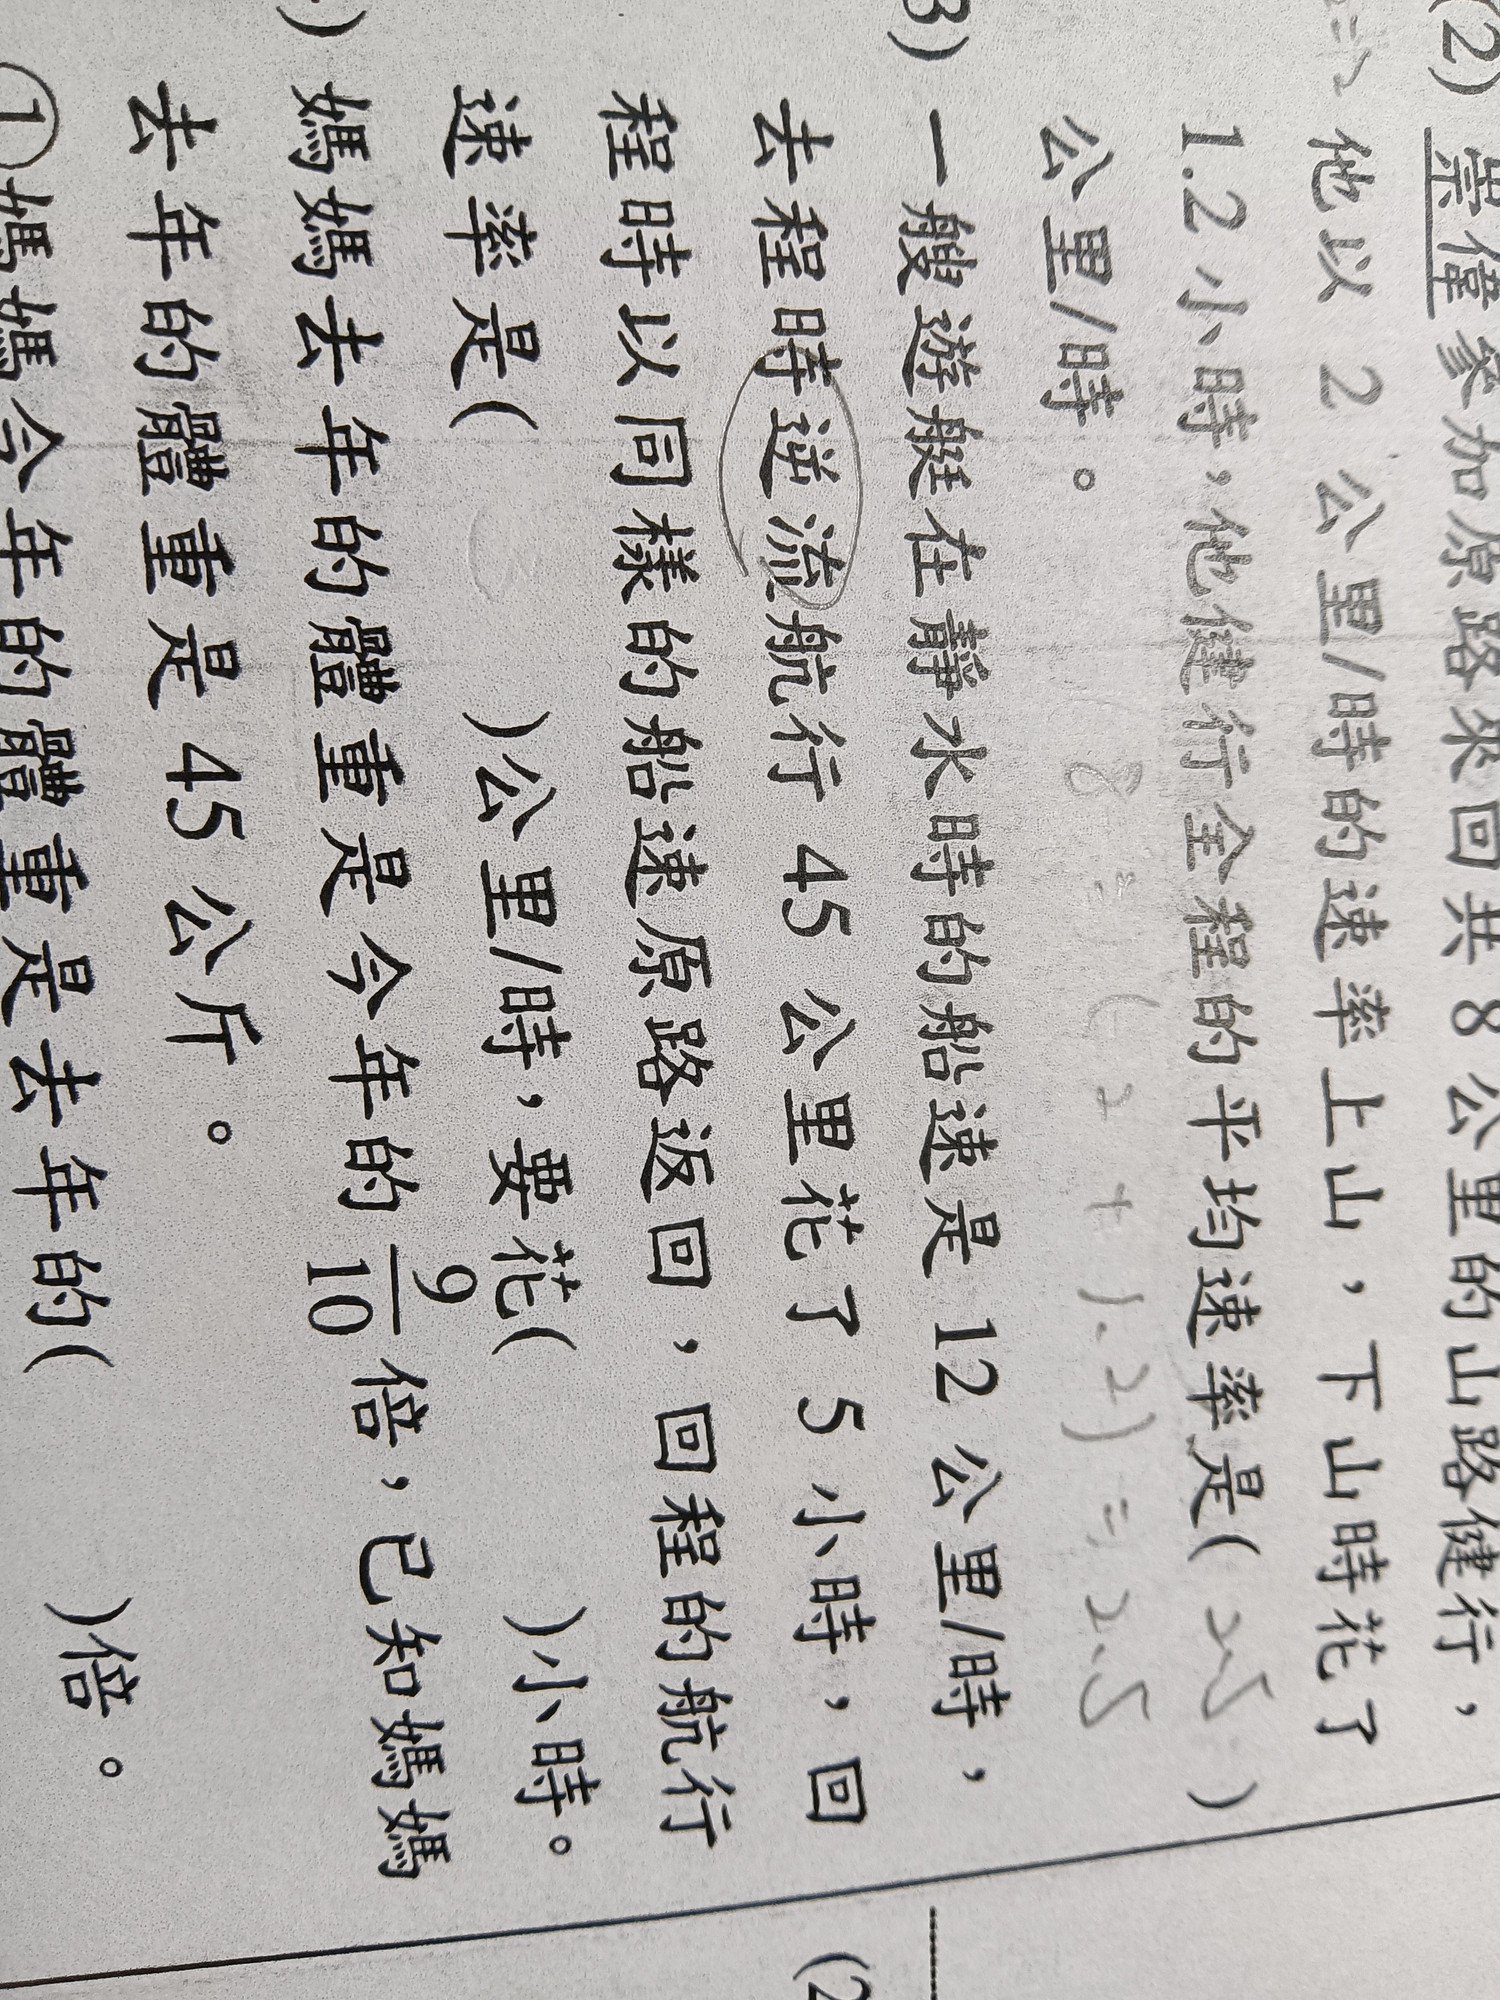 (2) 崇偉參加原路來回共 8 公里的山路健行，
他以 2 公里/時的速率上山，下山時花了
1.2 小時，他健行全程的平均速率是( 2.5 )
公里/時。
8÷(2+1.2)=2.5
3) 一艘遊艇在靜水時的船速是 12 公里/時，
去程時逆流航行 45 公里花了 5 小時，回
程時以同樣的船速原路返回，回程的航行
速率是( )公里/時，要花( )小時。
) 媽媽去年的體重是今年的 9/10 倍，已知媽媽
去年的體重是 45 公斤。
①媽媽今年的體重是去年的( )倍。
(2